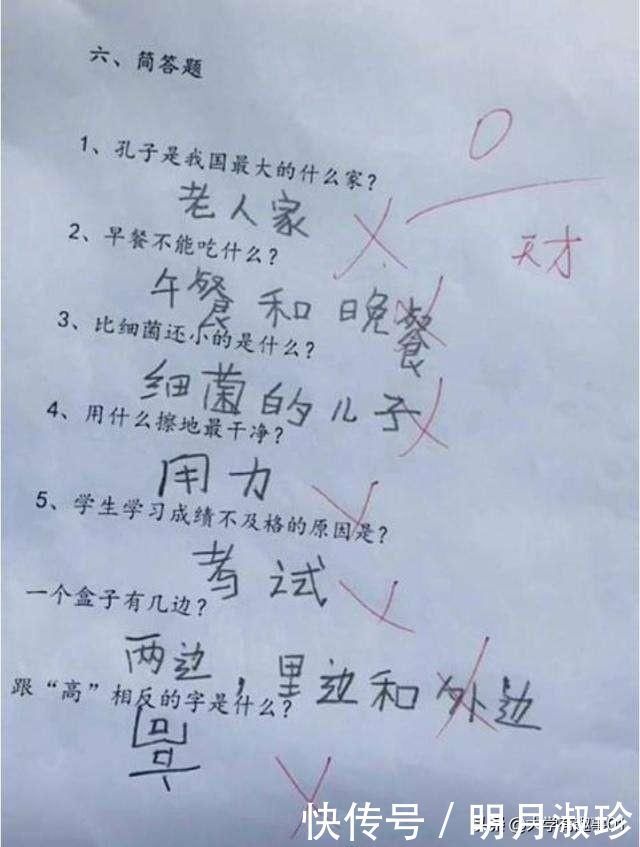 六、简答题
0
天才
1、孔子是我国最大的什么家？
老人家
2、早餐不能吃什么？
午餐和晚餐
3、比细菌还小的是什么？
细菌的儿子
4、用什么擦地最干净？
用力
5、学生学习成绩不及格的原因是？
考试
一个盒子有几边？
两边，里边和外边
跟“高”相反的字是什么？
快传号/明月淑珍